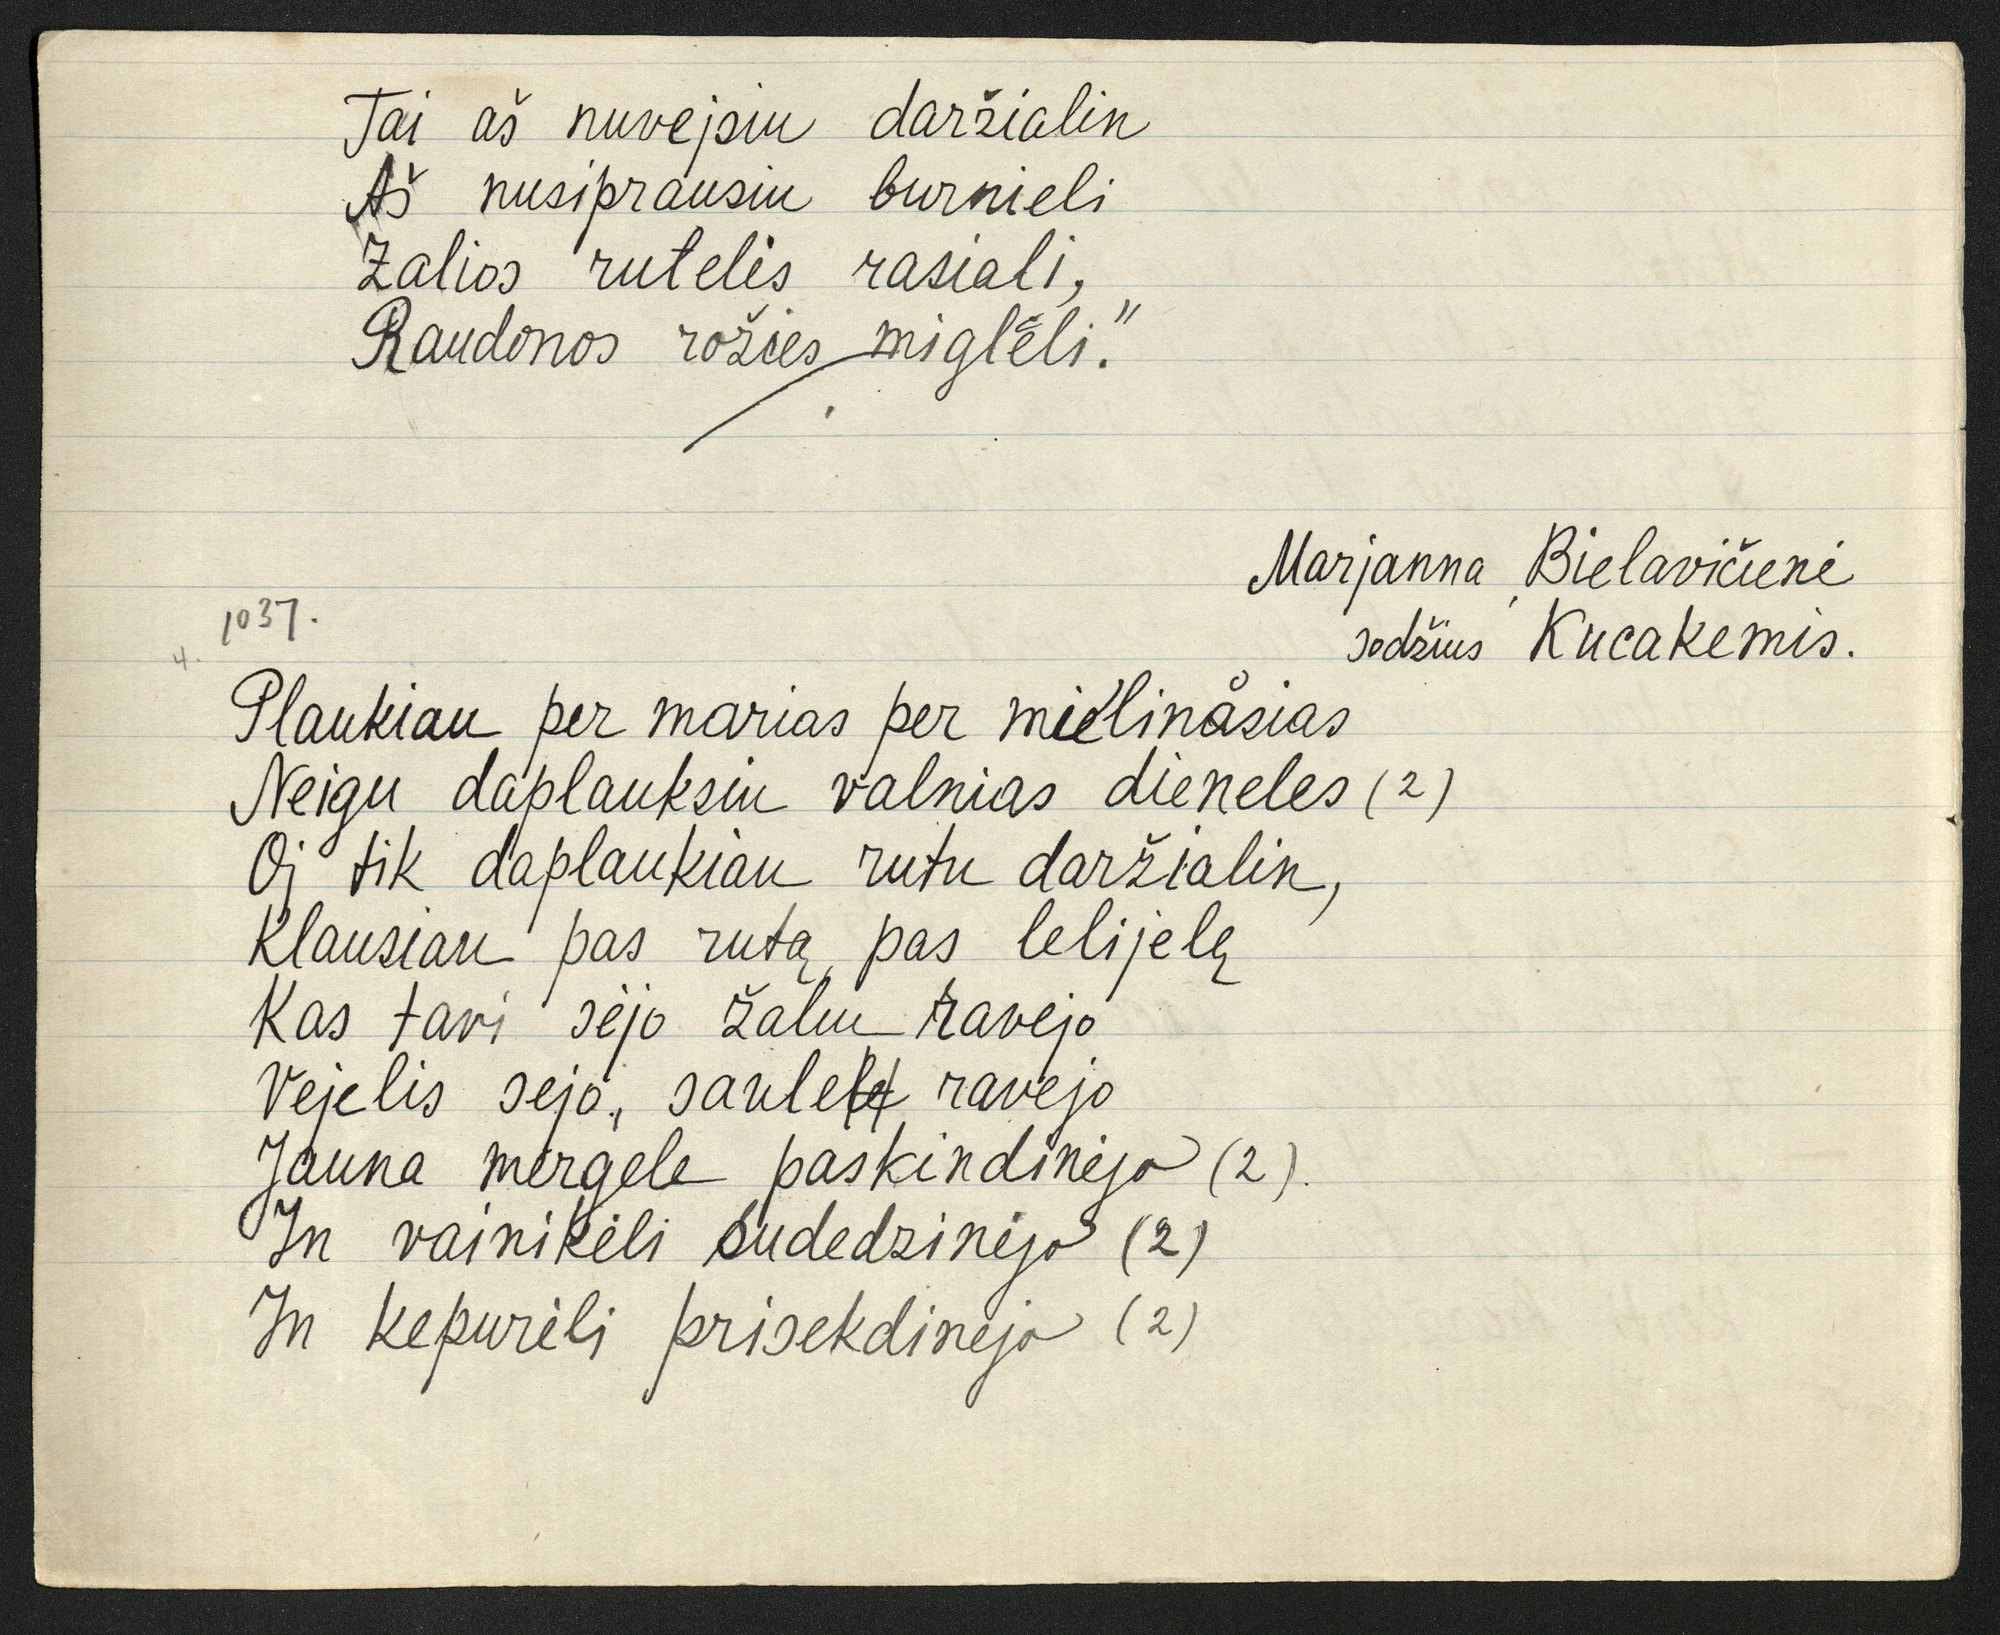 Tai aš nuvejsiu daržialin
Aš nusiprausiu burnieli
Žalios rutelės rasiali,
Raudonos rožies miglėli."
Marjanna Bielavičienė
sodžius Kucakemis.
1037.
4.
Plaukiau per marias per mielinåsias
Neigu daplauksiu valnias dieneles (2)
Oj tik daplaukiau rutu daržialin,
Klausiau pas rutą, pas lelijelę
Kas tavi sėjo žalu ravėjo
Vejelis sejo, saule ravejo
Jauna mergele paskindinėjo (2).
In vainikėli sudedzinėjo (2)
In kepurėli prisekdinėjo (2)